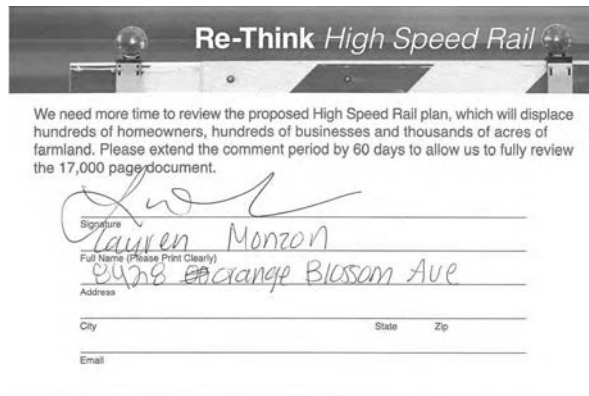 Re-Think High Speed Rail
We need more time to review the proposed High Speed Rail plan, which will displace
hundreds of homeowners, hundreds of businesses and thousands of acres of
farmland. Please extend the comment period by 60 days to allow us to fully review
the 17,000 page document.
Signature
Lauren Monzon
Full Name (Please Print Clearly)
8428 orange Blossom Ave
Address
City State Zip
Email